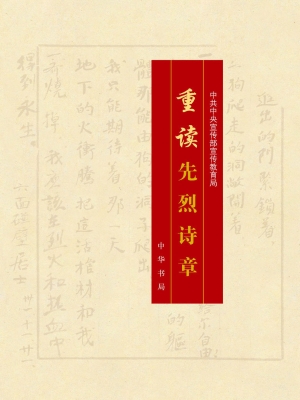 中共中央宣传部宣传教育局
重读先烈诗章
中华书局
出的门紧锁着
狗爬走的洞敞开着
的躯
我只能期待着那一天
地下的火冲腾把这活棺材和我
一齐烧掉我应该在烈火和热血中
得到永生。
六面碰壁居士
卅一·十一·廿一